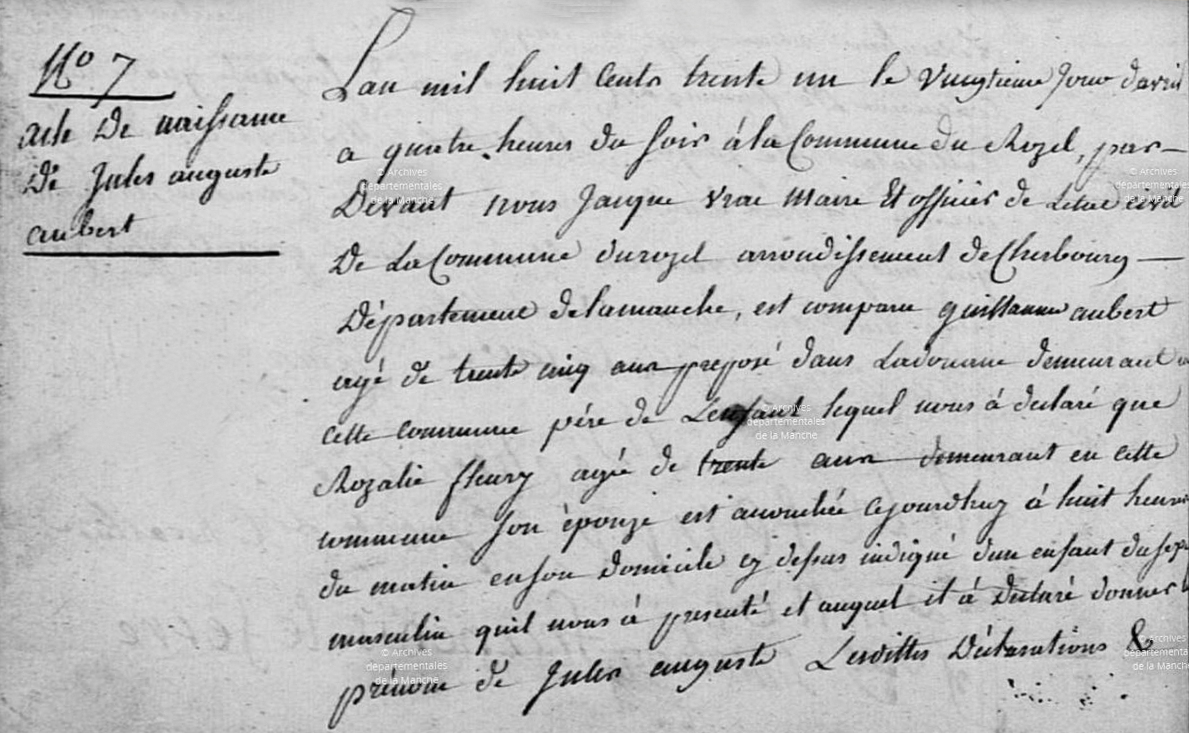 No 7
acte De naissance
De Jules auguste
aubert
Lan mil huit Cents trente un le Vingtieme Jour davril
a quatre heures du soir à la Commune du Rozel, par-
Devant nous Jacque vrac Maire Et officier de Letat civil
De La Commune durozel arrondissement de Cherbourg —
Département delamanche, est comparu guillaume aubert
agé de trente cinq ans preposé dans Ladouane demeurant
cette commune père de Lenfant lequel nous à declaré que
Rozalie fleury agée de trente ans demeurant en cette
commune son épouze est acouchée cejourdhuy à huit heures
du matin enson domicile cy dessus indiqué dun enfant dusexe
masculin quil nous à presenté et auquel il à Déclaré donner
prénom de Jules auguste Lesdittes Déclarations &
© Archives
départementales
de la Manche
© Archives
départementales
de la Manche
© Archives
départementales
de la Manche
© Archives
départementales
de la Manche
© Archives
départementales
de la Manche